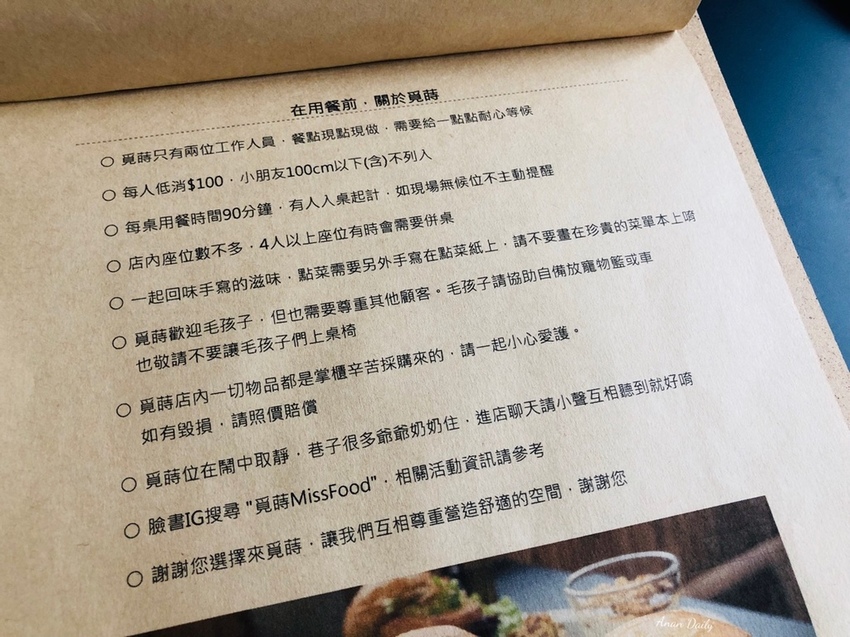 在用餐前，關於覓蒔
○ 覓蒔只有兩位工作人員，餐點現點現做，需要給一點點耐心等候
○ 每人低消$100，小朋友100cm以下(含)不列入
○ 每桌用餐時間90分鐘，有人入桌起計，如現場無候位不主動提醒
○ 店內座位數不多，4人以上座位有時會需要併桌
○ 一起回味手寫的滋味，點菜需要另外手寫在點菜紙上，請不要畫在珍貴的菜單本上唷
○ 覓蒔歡迎毛孩子，但也需要尊重其他顧客。毛孩子請協助自備放寵物籃或車
也敬請不要讓毛孩子們上桌椅
○ 覓蒔店內一切物品都是掌櫃辛苦採購來的，請一起小心愛護。
如有毀損，請照價賠償
○ 覓蒔位在鬧中取靜，巷子很多爺爺奶奶住，進店聊天請小聲互相聽到就好唷
○ 臉書IG搜尋 "覓蒔MissFood"，相關活動資訊請參考
○ 謝謝您選擇來覓蒔，讓我們互相尊重營造舒適的空間，謝謝您
Anun Daily